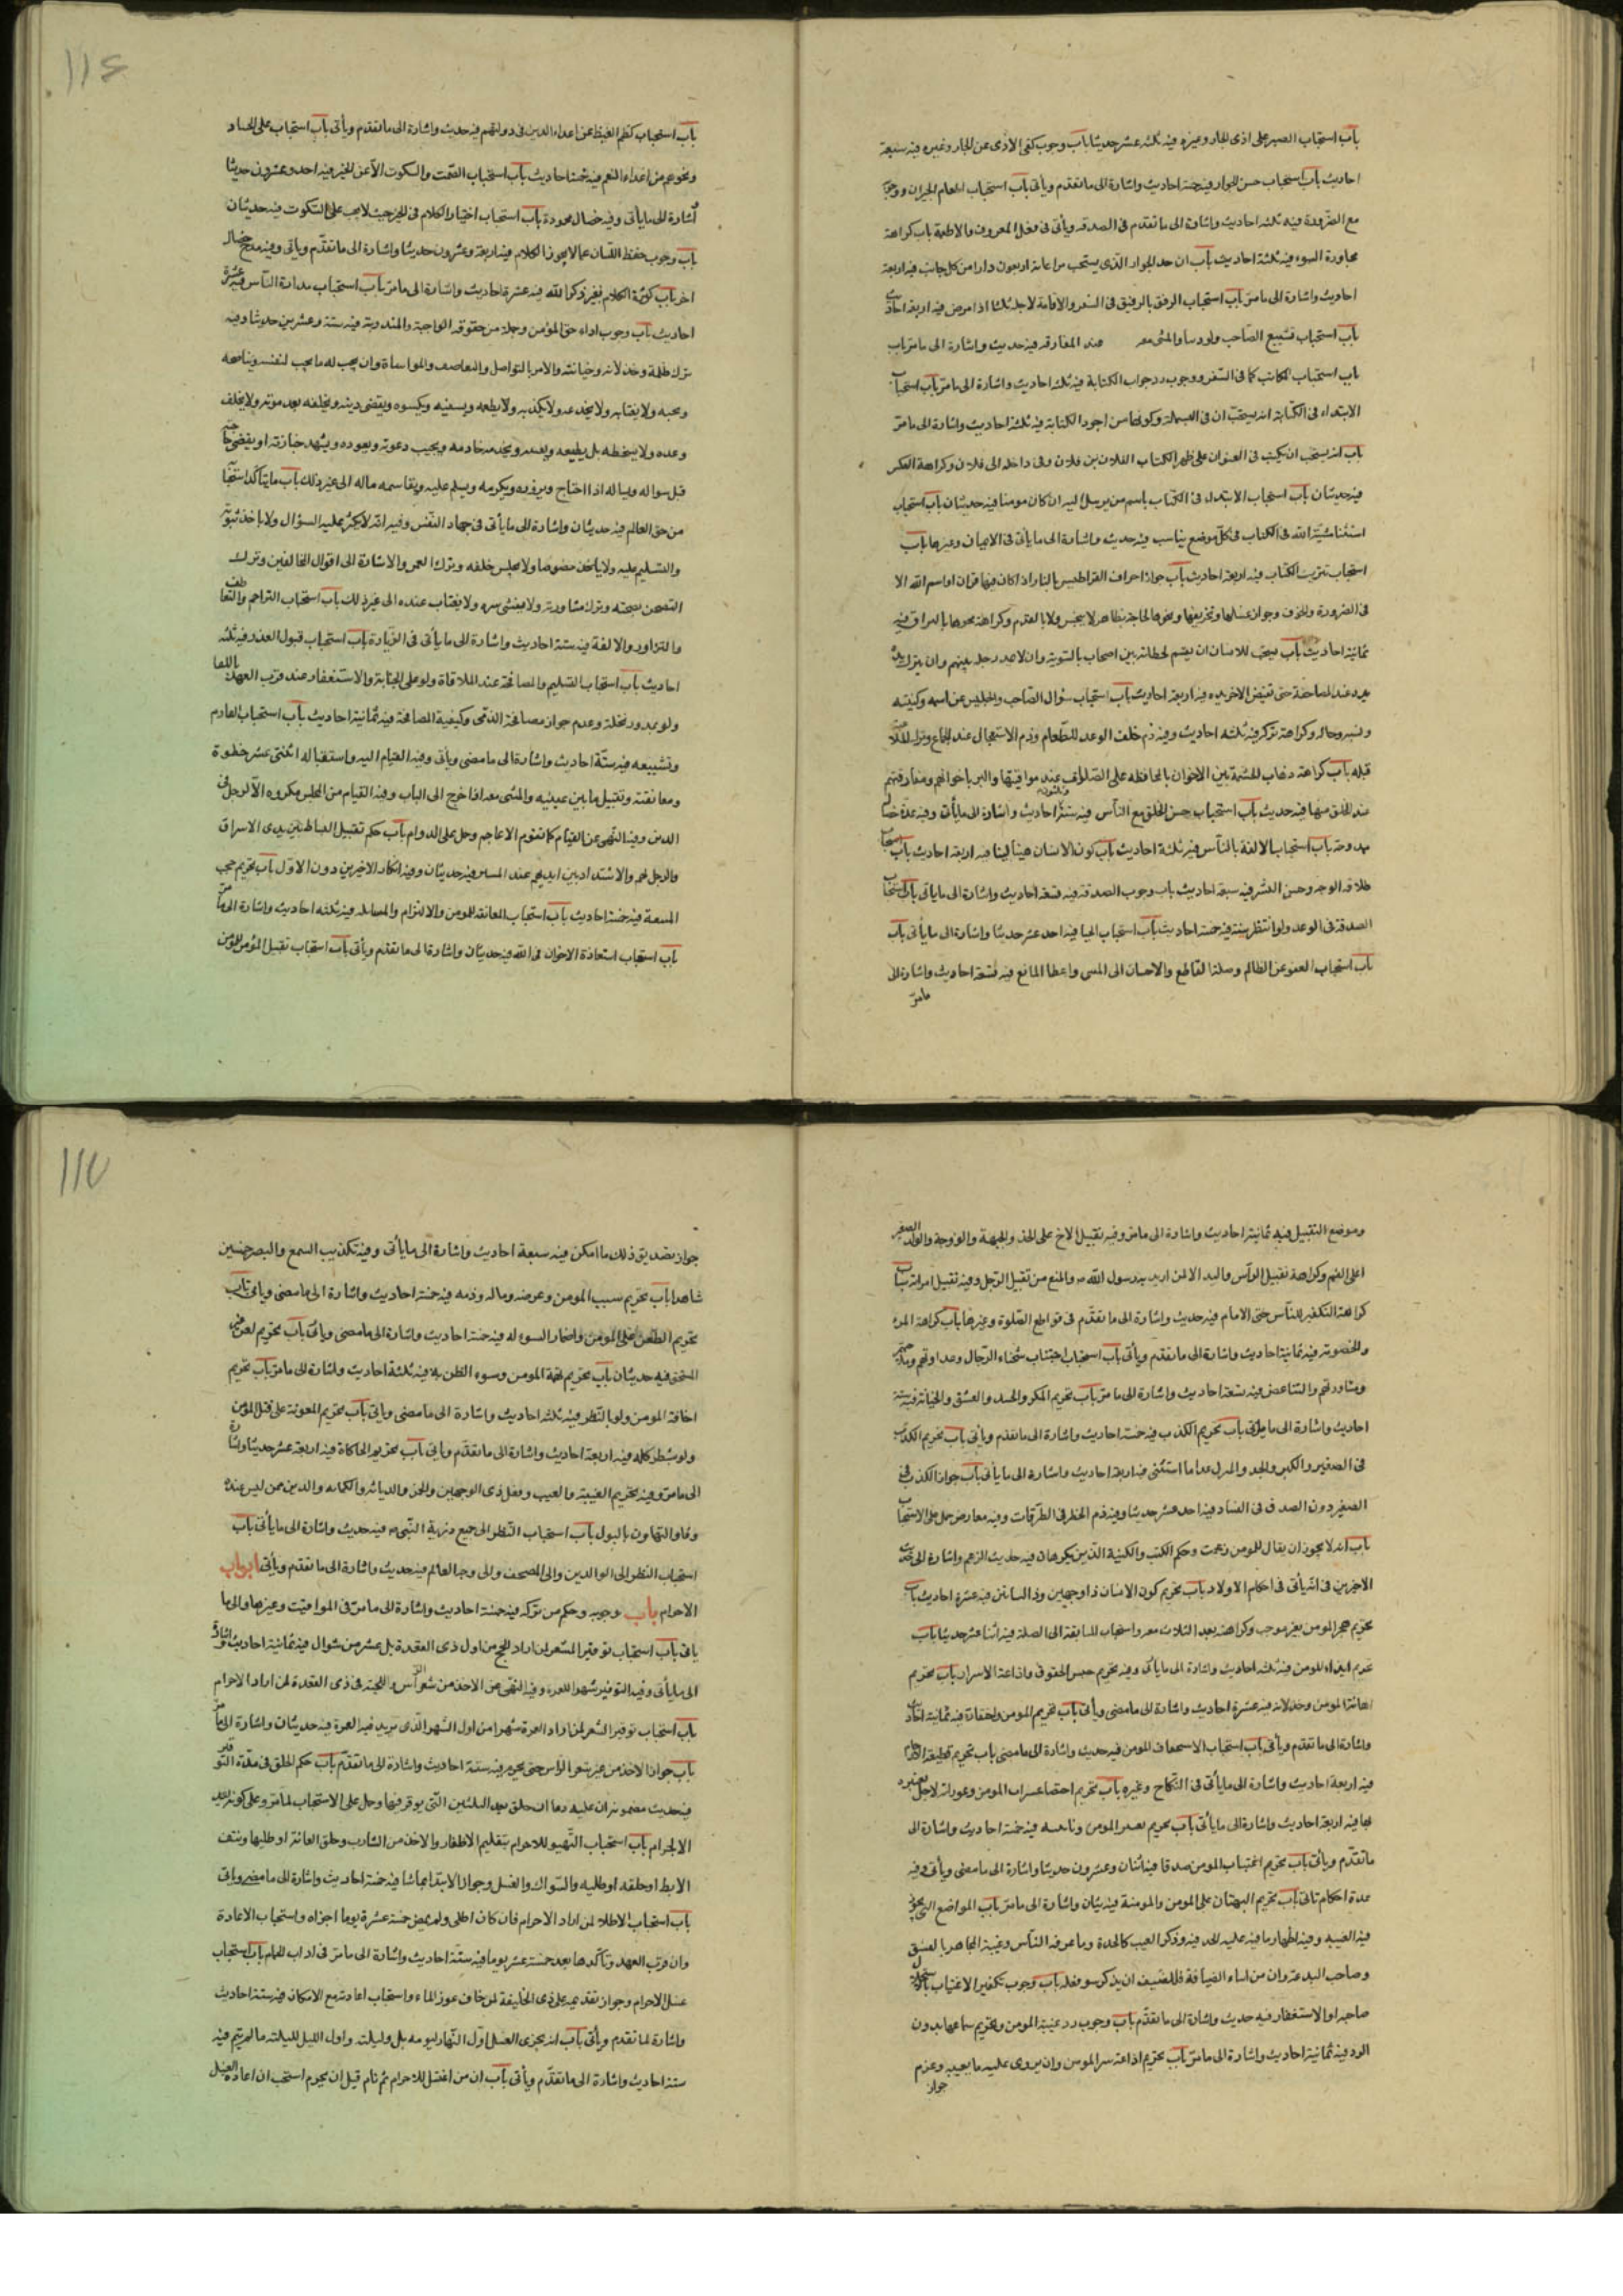 باب استحباب الصبر على اذى الجار وغيره فيه ثلثه عشر حديثا باب وجوب كف الاذى عن الجار وغيره فيه سبعة
احاديث باب استحباب حسن الجوار فيه خمسة احاديث واشارة الى ما تقدم ويأتى باب استحباب اطعام الجيران ووجوبه
مع الضرورة فيه ثلثه احاديث واشارة الى ما تقدم فى الصدقه ويأتى فى فعل المعروف والاطعمة باب كراهة
مجاورة السوء فيه ثلثة احاديث باب ان حد الجوار الذى يستحب مراعاته اربعون دارا من كل جانب فيه اربعة
احاديث واشارة الى ما مر باب استحباب الرفق بالرفيق فى السفر والاقامة لاجله ثلثا اذا مرض فيه اربعة احاديث
باب استحباب تشييع الصاحب ولو ذميا والمشى معه عند المفارقه فيه حديث واشارة الى ما مر باب
باب استحباب المكاتبه فى السفر ووجوب رد جواب الكتابة فيه ثلثه احاديث واشارة الى ما مر باب استحباب
الابتداء فى الكتابة بالبسملة وكونها من اجود الكتابة فيه ثلثة احاديث واشارة الى ما مر
باب انه يستحب ان يكتب فى العنوان على ظهر الكتاب لفلان بن فلان وفى داخله الى فلان وكراهة العكس
فيه حديثان باب استحباب الابتداء فى الكتاب باسم من يرسل اليه ان كان مومنا فيه حديثان باب استحباب
استثناء مشية الله فى الكتاب فى كل موضع يناسب فيه حديث واشارة الى ما ياتى فى الايمان وغيرها باب
استحباب تتريب الكتاب فيه اربعة احاديث باب جواز احراق القراطيس بالنار اذا كان فيها قران او اسم الله الا
فى الضرورة والخوف وجواز غسلها وتخريقها ومحوها لحاجة بطاهر لا بنجس ولا بالقدم وكراهة محوها بالبزاق فيه
ثمانية احاديث باب يستحب للانسان ان يقسم لحظاته بين اصحابه بالسوية وان لا يمد رجله بينهم وان يترك يده
بيده عند المصافحة حتى يقبض الاخر يده فيه اربعة احاديث باب استحباب سؤال الصاحب والجليس عن اسمه وكنيته
ونسبه وحاله وكراهة تركه فيه ثلثه احاديث وفيه ذم خلف الوعد للطعام وذم الاستعجال عند الجماع وترك الملاعبة
قبله باب كراهة ذهاب الحشمة بين الاخوان
باب استحباب حسن الخلق مع الناس فيه احاديث واشارة الى ما يأتى وفيه عدة خصال
محمودة باب استحباب الالفة بالناس فيه ثلثة احاديث باب كون الانسان هينا لينا فيه اربعة احاديث باب استحباب
طلاقه الوجه وحسن البشر فيه سبعة احاديث باب وجوب الصدق فيه تسعة احاديث واشارة الى ما ياتى باب استحباب
الصدق فى الوعد ولو انتظر سنة فيه خمسة احاديث باب استحباب الحيا فيه احد عشر حديثا واشارة الى ما يأتى باب
باب استحباب العفو عن الظالم وصلة القاطع والاحسان الى المسى واعطا المانع فيه تسعة احاديث واشارة الى
ما مر
116
باب استحباب كظم الغيظ عن اعداء الدين فى دولتهم فيه حديث واشارة الى ما تقدم ويأتى باب استحباب على الحساد
ونحوهم من اعداء النعم فيه خمسة احاديث باب استحباب الصمت والسكوت الا عن الخير فيه احد وعشرون حديثا
واشارة الى ما يأتى وفيه خصال محمودة باب استحباب اختيار الكلام فى الخير حيث لا يجب على السكوت فيه حديثان
باب وجوب حفظ اللسان عما لا يجوز من الكلام فيه اربعة وعشرون حديثا واشارة الى ما تقدم وياتى وفيه مدح خصال
اخر باب كثرة الكلام بغير ذكر الله فيه عشرة احاديث واشارة الى ما مر باب استحباب مداراة الناس فيه عشرة
احاديث باب وجوب اداء حق المؤمن وجملة من حقوقه الواجبة والمندوبة فيه ستة وعشرين حديثا وفيه
ترك ظلمه وخذلانه وخيانته والامر بالتواصل والتعاطف والمواساة وان يحب له ما يحب لنفسه ويناصحه
ويحبه ولا يغتابه ولا يخدعه ولا يكذبه ويطعمه ويسقيه ويكسوه ويقضى دينه ويخلفه بعد موته ولا يخلف
وعده ولا يسخطه بل يطيعه ويخدمه خادمه ويجيب دعوته ويعوده ويشهد جنازته او يقضى حاجته
قبل سواله وبماله اذا احتاج ويزوره ويكرمه ويسلم عليه ويقاسمه ماله الى غير ذلك باب ما يتأكد استحبابه
من حق العالم فيه حديثان واشارة الى ما يأتى فى جهاد النفس وفيه انه لا يكثر عليه السؤال ولا ياخذ بثوبه
والتسليم عليه مخصوصا ولا يجلس خلفه وترك الغمز والاشارة الى اقوال المخالفين وترك
التضجر بصحبته وترك مشاورته ولا يفشى سره ولا يغتاب عنده الى غير ذلك باب استحباب التراحم والتعاطف
والتزاور والالفة فيه ستة احاديث واشارة الى ما يأتى فى الزيارة باب استحباب قبول العذر فيه ثلثه
احاديث باب استحباب التسليم والمصافحة عند الملاقاة ولو على الجنابة والاستغفار عند قرب العهد باللقا
ولو بدور نخلة وعدم جواز مصافحة الذمى وكيفية المصافحة فيه ثمانية احاديث باب استحباب القادم
وتشييعه فيه ستة احاديث واشارة الى ما مضى وياتى وفيه القيام اليه واستقباله اثنتى عشر خطوة
ومعانقته وتقبيل ما بين عينيه والمشى معه اذا خرج الى الباب وفيه القيام من المجلس مكروه الا لرجل فى
الدين وفيه النهى عن القيام كما تقوم الاعاجم وحمل على الدوام باب حكم تقبيل البساط بين يدى الاشراف
والترجل لهم والاشتداد بين ايديهم عند المسير فيه حديثان وفيه انكار الاخيرين دون الاول باب تحريم حجب
الشيعة فيه خمسة احاديث باب استحباب المعانقه للمومن والالتزام والمسائله فيه ثلثه احاديث واشارة الى ما مر
باب استحباب استعاذة الاخوان فى الله فيه حديثان واشارة الى ما تقدم ويأتى باب استحباب تقبيل المؤمن المؤمن
وموضع التقبيل فيه ثمانية احاديث واشارة الى ما مر وفيه تقبيل الاخ على الخد والجبهة والزوجة والولد الصغير
على الفم وكراهة تقبيل الرأس واليد الا لمن اريد به رسول الله ص والمنع من تقبيل الرجل وفيه تقبيل امرأته باب
كراهة التكفير للناس حتى الامام فيه حديث واشارة الى ما تقدم فى قواطع الصلوة وغيرها باب كراهة المرء
والخصومة فيه ثمانية احاديث واشارة الى ما تقدم ويأتى باب استحباب اجتناب شحناء الرجال وعداوتهم
ومشاورتهم والتباغض فيه تسعة احاديث واشارة الى ما مر باب تحريم المكر والحسد والغش والخيانة فيه ستة
احاديث واشارة الى ما يأتى باب تحريم الكذب فيه خمسة احاديث واشارة الى ما تقدم ويأتى باب تحريم الكذب
فى الصغير والكبير والجد والهزل عدا ما استثنى فيه اربعة احاديث واشارة الى ما يأتى باب جواز الكذب فى
الصغير دون الصدق فى الفساد فيه احد عشر حديثا وفيه ذم الخطر فى الطرقات وفيه معارض حمل على الاستحباب
باب انه لا يجوز ان يقال للمومن زعمت وحكم الكنب والكنية الذين يكرهان فيه حديث الزعم واشارة الى
الاخيرين فى انه يأتى فى احكام الاولاد باب تحريم كون الانسان ذا وجهين وذا لسانين فيه عشرة احاديث باب
تحريم هجر المومن بغير موجب وكراهته بعد الثلاث معه واستحباب المسابقة الى الصلة فيه اثنا عشر حديثا باب
تحريم ايذاء المومن فيه ثلثه احاديث واشارة الى ما يأتى وفيه تحريم حبس الحقوق واذاعة الاسرار باب تحريم
اهانة المومن وخذلانه فيه عشرة احاديث واشارة الى ما مضى ويأتى باب تحريم المومن واحتقاره فيه ثمانية احاديث
واشارة الى ما تقدم ويأتى باب استحباب الاستخفاف المومن فيه حديث واشارة الى ما مضى باب تحريم قطيعة الارحام
فيه اربعة احاديث واشارة الى ما يأتى فى النكاح وغيره باب تحريم احصاء عثرات المومن وعوراته لاجل تعييره
بها فيه اربعة احاديث واشارة الى ما يأتى باب تحريم تعيير المومن وتانيبه فيه خمسة احاديث واشارة الى
ما تقدم ويأتى باب تحريم اغتياب المومن صدقا فيه اثنان وعشرون حديثا واشارة الى ما مضى ويأتى وفيه
عدة احكام تاتى باب تحريم البهتان على المومن والمومنة فيه واشارة الى ما مر باب المواضع التى يجوز
فيه الغيبة وفيه اظهار ما فيه عليه الحد فيه وذكر العيب كالحدة وما عرفه الناس وغيبة المجاهر بالفسق
وصاحب البدعة وان من اساء الضيافة فللضيف ان يذكر سوء فعله باب وجوب تكفير الاغتياب باستحلال
صاحبه او الاستغفار فيه حديث واشارة الى ما تقدم باب وجوب رد غيبة المومن وتحريم سماعها بدون
الرد فيه ثمانية احاديث واشارة الى ما مر باب تحريم اذاعة سر المومن وان يروى عليه ما يعيبه وعدم
جواز
117
جواز تصديق ذلك ما امكن فيه سبعة احاديث واشارة الى ما يأتى وفيه تكذيب السمع والبصر خمسين
شاهدا باب تحريم سب المومن وعرضه وماله ودمه فيه خمسة احاديث واشارة الى ما مضى وياتى باب
تحريم الطعن على المومن واضمار السوء له فيه خمسة احاديث واشارة الى ما مضى وياتى باب تحريم لعن غير
المستحق فيه حديثان باب تحريم تهمة المومن وسوء الظن به فيه ثلثة احاديث واشارة الى ما مر باب تحريم
اخافة المومن ولو بالنظر فيه ثلثه احاديث واشارة الى ما مضى وياتى باب تحريم المعونة على قتل المومن
ولو بشطر كلمه فيه اربعة احاديث واشارة الى ما تقدم وياتى باب تحريم المحاكاة فيه اربعة عشر حديثا واشارة
الى ما مر وفيه تحريم الغيبة والعيب وفعل ذى الوجهين والخمر والدياثه والكهانه والدين ممن ليس عنده
وفاء والتهاون بالبول باب استحباب النظر الى جميع ذرية النبى ص فيه حديث واشارة الى ما يأتى باب
استحباب النظر الى الوالدين والى المصحف والى وجه العالم فيه حديث واشارة الى ما تقدم ويأتى ابواب
الاحرام باب وجوبه وحكم من تركه فيه خمسة احاديث واشارة الى ما مر فى المواقيت وغيرها والى ما
ياتى باب استحباب توفير الشعر لمن اراد الحج من اول ذى القعدة بل عشر من شوال فيه ثمانية احاديث واشارة
الى ما يأتى وفيه التوفير شهرا للعمرة وفيه النهى عن الاخذ من شعر الرأس واللحية فى ذى القعدة لمن اراد الاحرام
باب استحباب توفير الشعر لمن اراد العمرة شهرا من اول الشهر الذى يريد فيه العمرة فيه حديثان واشارة الى ما مر
باب جواز الاخذ من غير شعر الراس حتى يحرم فيه ستة احاديث واشارة الى ما تقدم باب حكم الحلق فى مدة التوفير
فيه حديث مضمونه ان عليه دما ان حلق بعد الثلثين التى يوفر فيها وحمل على الاستحباب لما مر وعلى كونه بعد
الاحرام باب استحباب التهيو للاحرام بتقليم الاظفار والاخذ من الشارب وحلق العانة او طليها ونتف
الابط او حلقه او طليه والسواك والغسل وجواز الابتداء بما شا فيه خمسة احاديث واشارة الى ما مضى وياتى
باب استحباب الاطلاء لمن اراد الاحرام فان كان اطلى ولم يمض خمسة عشرة يوما اجزاه واستحباب الاعادة
وان قرب العهد وتأكدها بعد خمسة عشر يوما فيه ستة احاديث واشارة الى ما مر فى اداب الحمام باب استحباب
غسل الاحرام وجواز تقديمه على ذى الحليفة لمن خاف عوز الماء واستحباب اعادته مع الامكان فيه ستة احاديث
واشارة لما تقدم ويأتى باب انه يجزى الغسل اول النهار ليومه بل وليلته واول الليل لليلته ما لم ينم فيه
ستة احاديث واشارة الى ما تقدم ويأتى باب ان من اغتسل للاحرام ثم نام قبل ان يحرم استحب ان اعادة الغسل